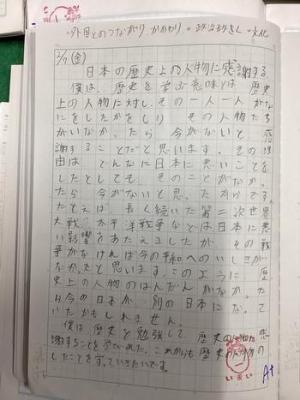 外国とのつながり、かかわり → 政治のしくみ → 文化
2/7(金)
日本の歴史上の人物に感謝する
僕は、歴史を学ぶ意味は歴史
上の人物に対し、その一人一人がな
にをしたかをしり その人物たち
がいなかったら 今がないと 感
謝することだと思います。その理
由は どんなに日本に悪いことを
したとしても そのことがなかっ
たら今がないと思ったからです。
たとえば 長く続いた第二次世界
大戦 太平洋戦争などは日本に悪
い影響をあたえましたが その戦
争がなければ今の平和へのいしきが
なかったと思います。このように 歴
史上の人物のはんだんがなかった
ら今の日本が 別の日本になって
いたかもしれません。
僕は歴史を勉強して 歴史の人物に感
謝することを学べた。これからも歴史の人物の
したことを学んでいきたいです
A+